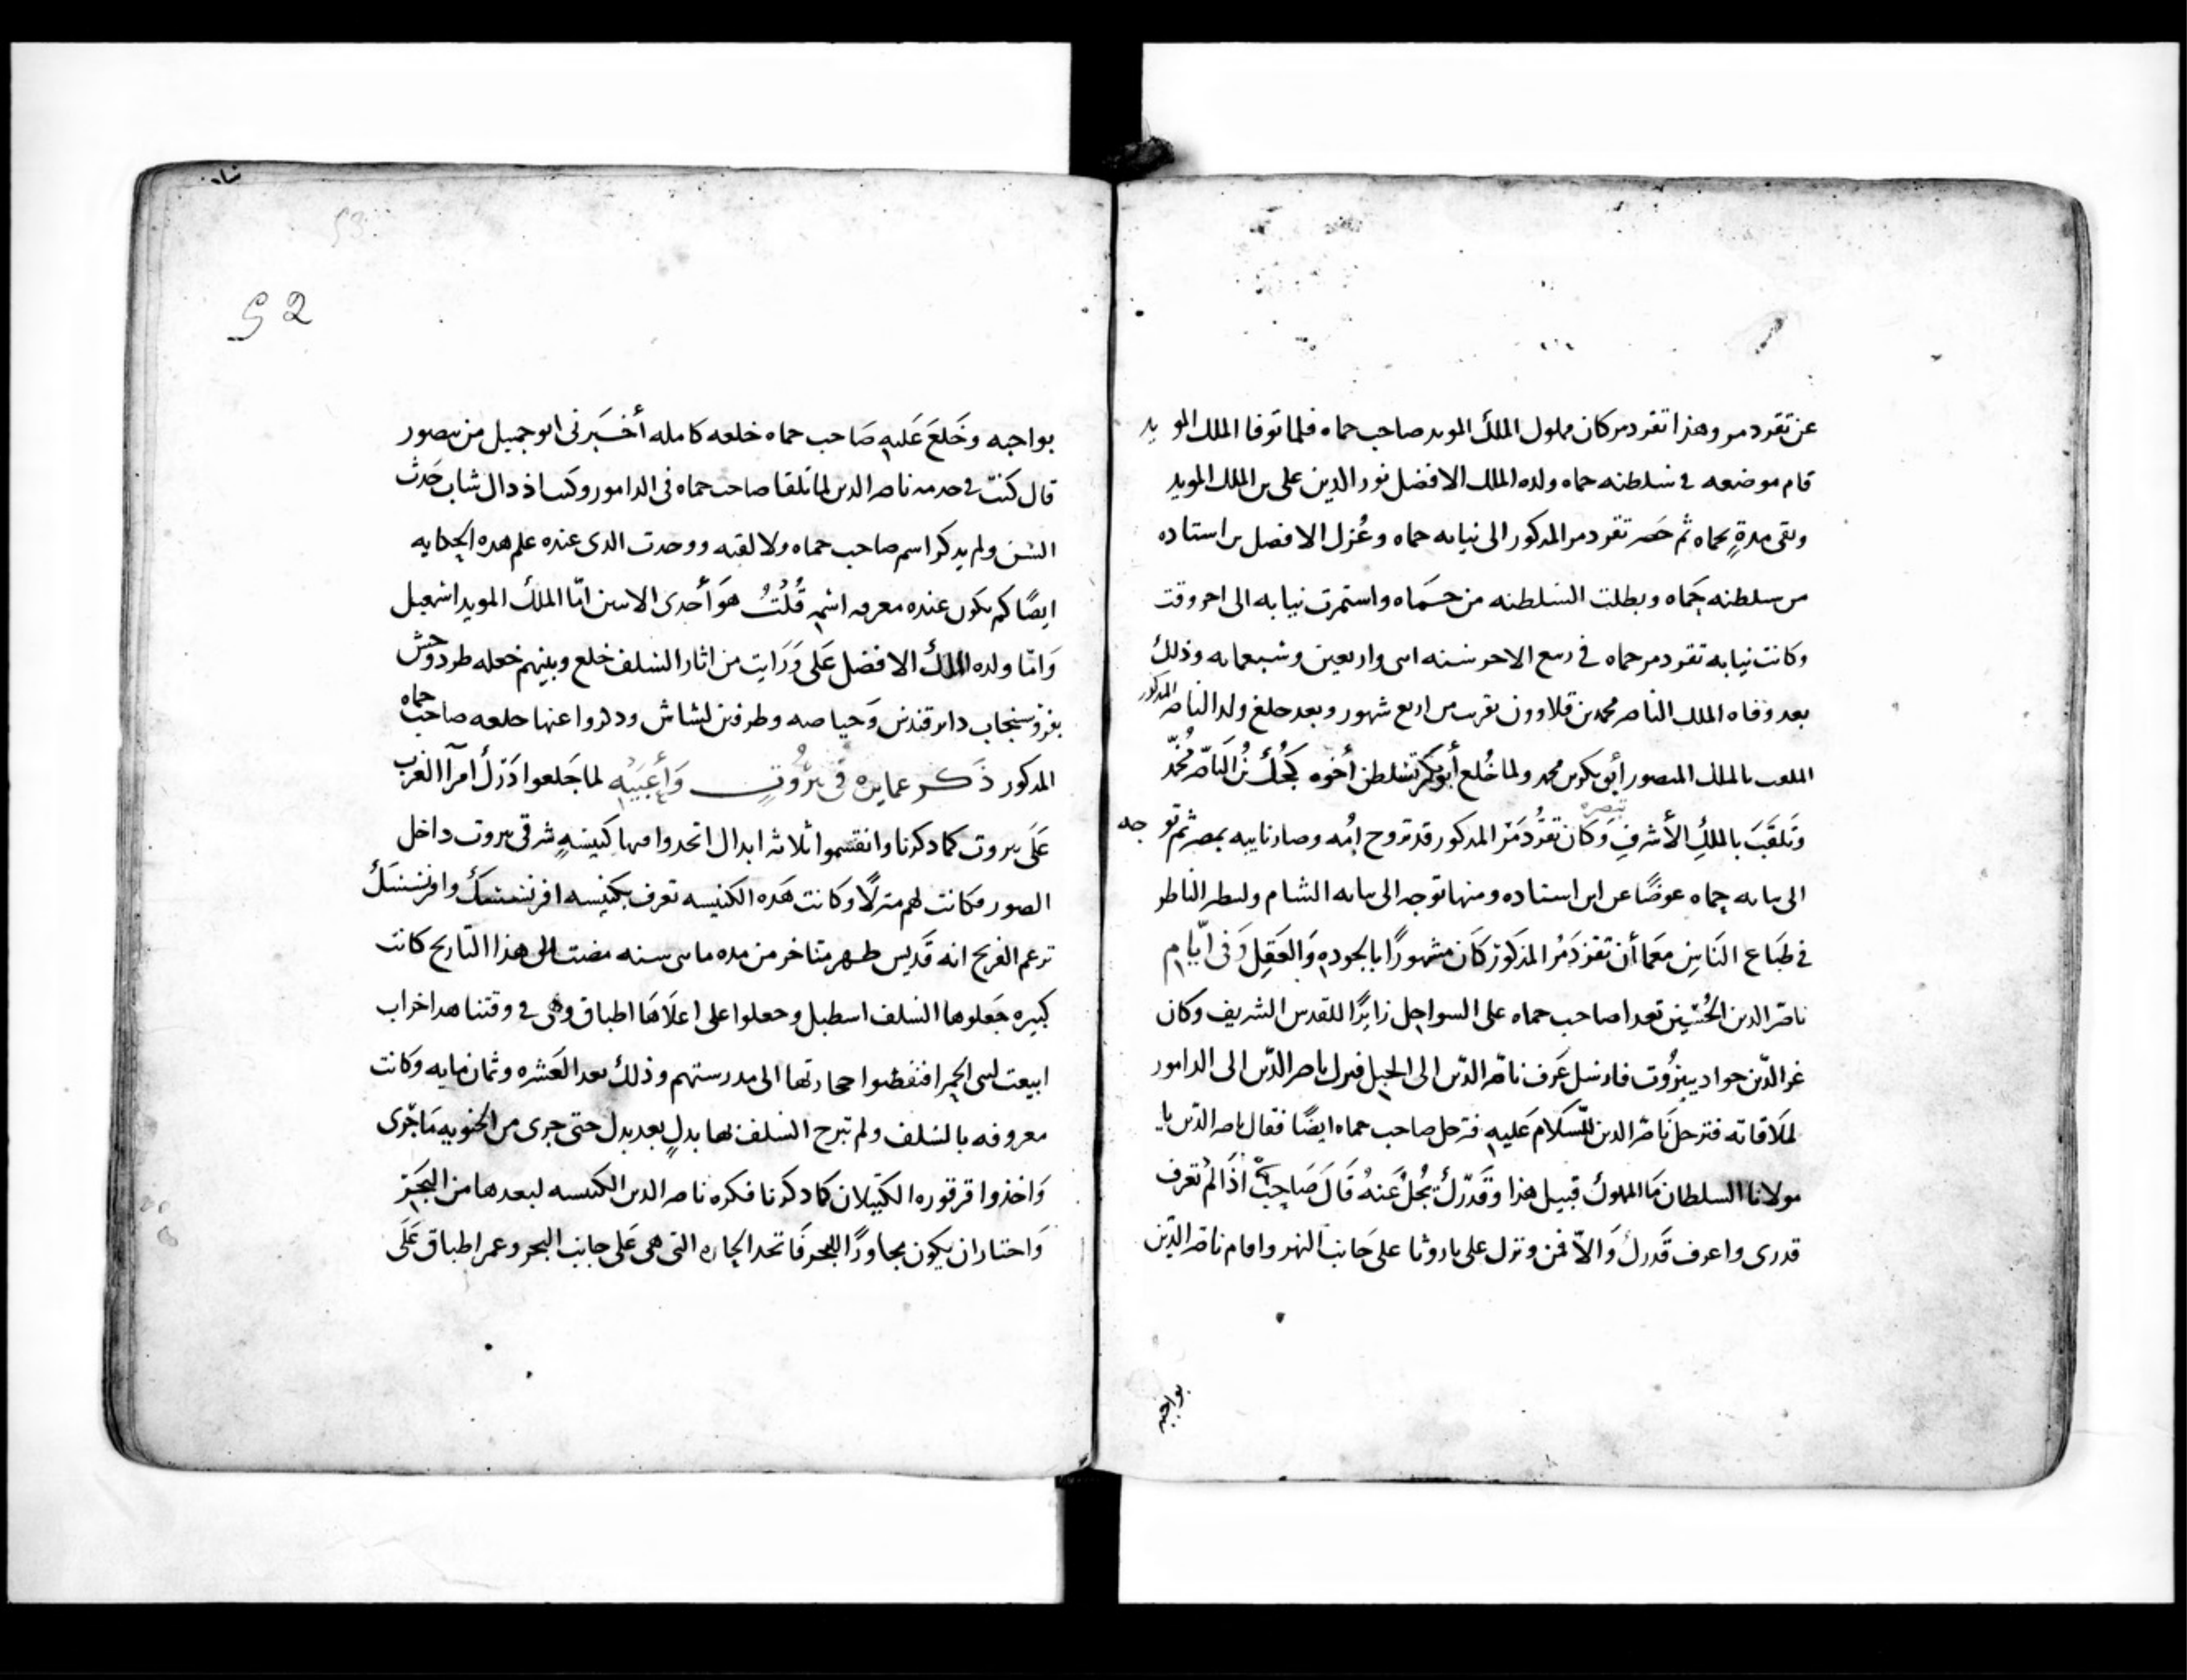 عن تقردمر وهذا تقردمر كان مملوك الملك المويد صاحب حماه فلما توفا الملك المويد
قام موضعه في سلطنه حماه ولده الملك الافضل نور الدين على بن الملك المويد
وبقى مدةٍ بحماه ثم حضر تقردمر المدكور الى نيابه حماه وعُزل الافضل بن استاده
من سلطنه حماه وبطلت السلطنه من حماه واستمرت نيابه الى اخر وقت
وكانت نيابه تقردمر حماه في ربيع الاخر سنه اثنين واربعين وسبعمايه وذلك
بعد وفاه الملك الناصر محمد بن قلاوون بقريب من اربع شهور وبعد خلع ولد الناصر المدكور
الملقب بالملك المنصور أبى بكر بن محمد ولما خُلع أبو بكر تسلطن أخوه كُجُكْ بن الناصر مُحمّد
وتلقب بالملك الأشرف وكان تقزدمر المدكور قد تزوج امُه وصار نايبه بمصر ثم توجه
الى نيابه حماه عوضًا عن ابن استاده ومنها توجه الى نيابه الشام ولينظر الناظر
في طباع الناس مع ما أن تقزدمر المذكور كان مشهورًا بالجوده والعقل وفى ايّام
ناصر الدين الحُسين تعدا صاحب حماه على السواحل زايرًا للقدس الشريف وكان
عز الدّين جواد ببيرُوت فارسل عَرف ناصر الدّين الى الجبل فنزل ناصر الدّين الى الدامور
لملاقاته فترحل ناصر الدين للسّلام عَليه فترحل صاحب حماه ايضًا فقال ناصر الدّين يا
مولانا السلطان ما المملوك قبيل هذا وقدرك يجُل عَنهُ قال صاحب حماه اذا لم تعرف
قدرى واعرف قدرك والاّ فمن ونزل على باروثا على جانب النهر واقام ناصر الدّين
بواجبه
52
بواجبه وخَلعَ عَليه صَاحب حماه خلعه كامله أخبرنى ابو جميل من بيصور
قال كنت في خدمه ناصر الدين لما تلقا صاحب حماه فى الدامور وكنت اذ داك شاب حَدث
السن ولم يدكر اسم صاحب حماه ولا لقبه ووجدت الدى عنده علم هده الحكايه
ايضًا لم يكون عنده معرفه اسمه قُلتُ هوَ أحدى الاسين امّا الملك المويد اسمعيل
وَامّا ولده الملك الافضل عَلى ورَايت من اثار السلف خلع وبينهم خلعه طرد وحش
بفرو سنجاب داير قندس وَحياصه وطرفين لشاش ودكروا عنها خلعه صاحب حماه
المدكور ذكر عمايره فى بيرُوت وَأعبَيْه لما جعلوا دَرك امرآ الغرب
عَلى بيروت كما دكرنا وانقسموا ثلاثه ابدال اتخدوا فيها كنيسهٍ شرقى بيروت داخل
الصور فكانت لهم منزلًا وكانت هده الكنيسه تعرف بكنيسه افرنسسك وافرنسسك
تزعم الفرنج انه قَديس ظهر متاخر من مده مايتى سنه مضت الى هذا التاريخ كانت
كبيره جَعلوها السلف اسطبل وجعلوا على اعلاها اطباق وهى في وقتنا هدا خراب
ابيعت لبنى الحمرا فنقضوا حجارتها الى مدرستهم وذلك بعد العَشره وثمان مايه وكانت
معروفه بالسلف ولم تبرح السلف بها بدلٍ بعد بدل حتى جرى من الجنويه ما جَرى
وَاخذوا قرقوره الكتيلان كما دكرنا فكره ناصر الدين الكنيسه لبعدها من البَحر
وَاختار ان يكون مجاورًا للبحر فاتخد الحاره التى هى عَلى جانب البحر وعمر اطباق عَلَى